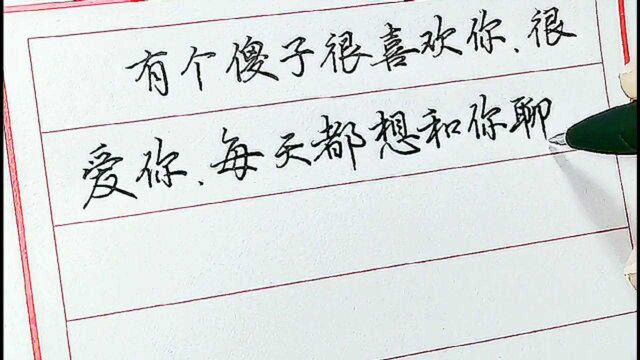 有个傻子很喜欢你、很
爱你、每天都想和你聊